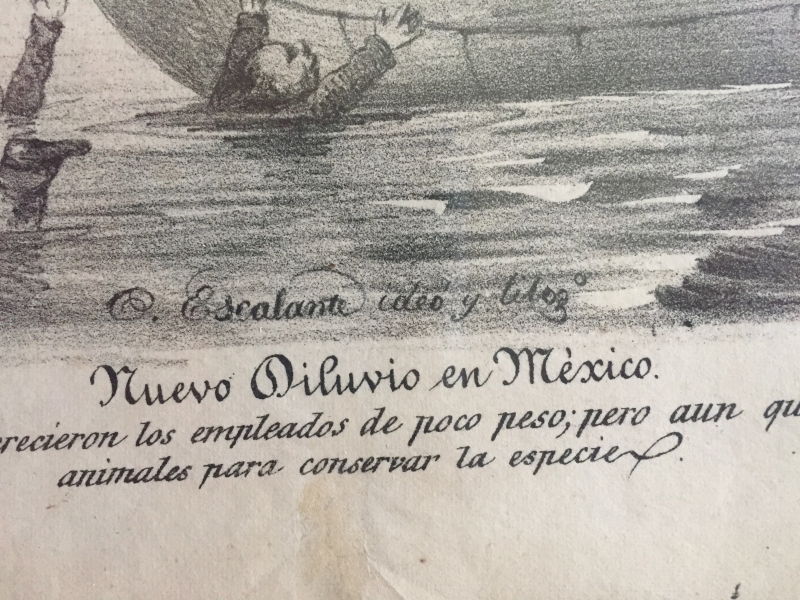 C. Escalante ideó y litogº
Nuevo Diluvio en México.
recieron los empleados de poco peso; pero aun qu
animales para conservar la especie.